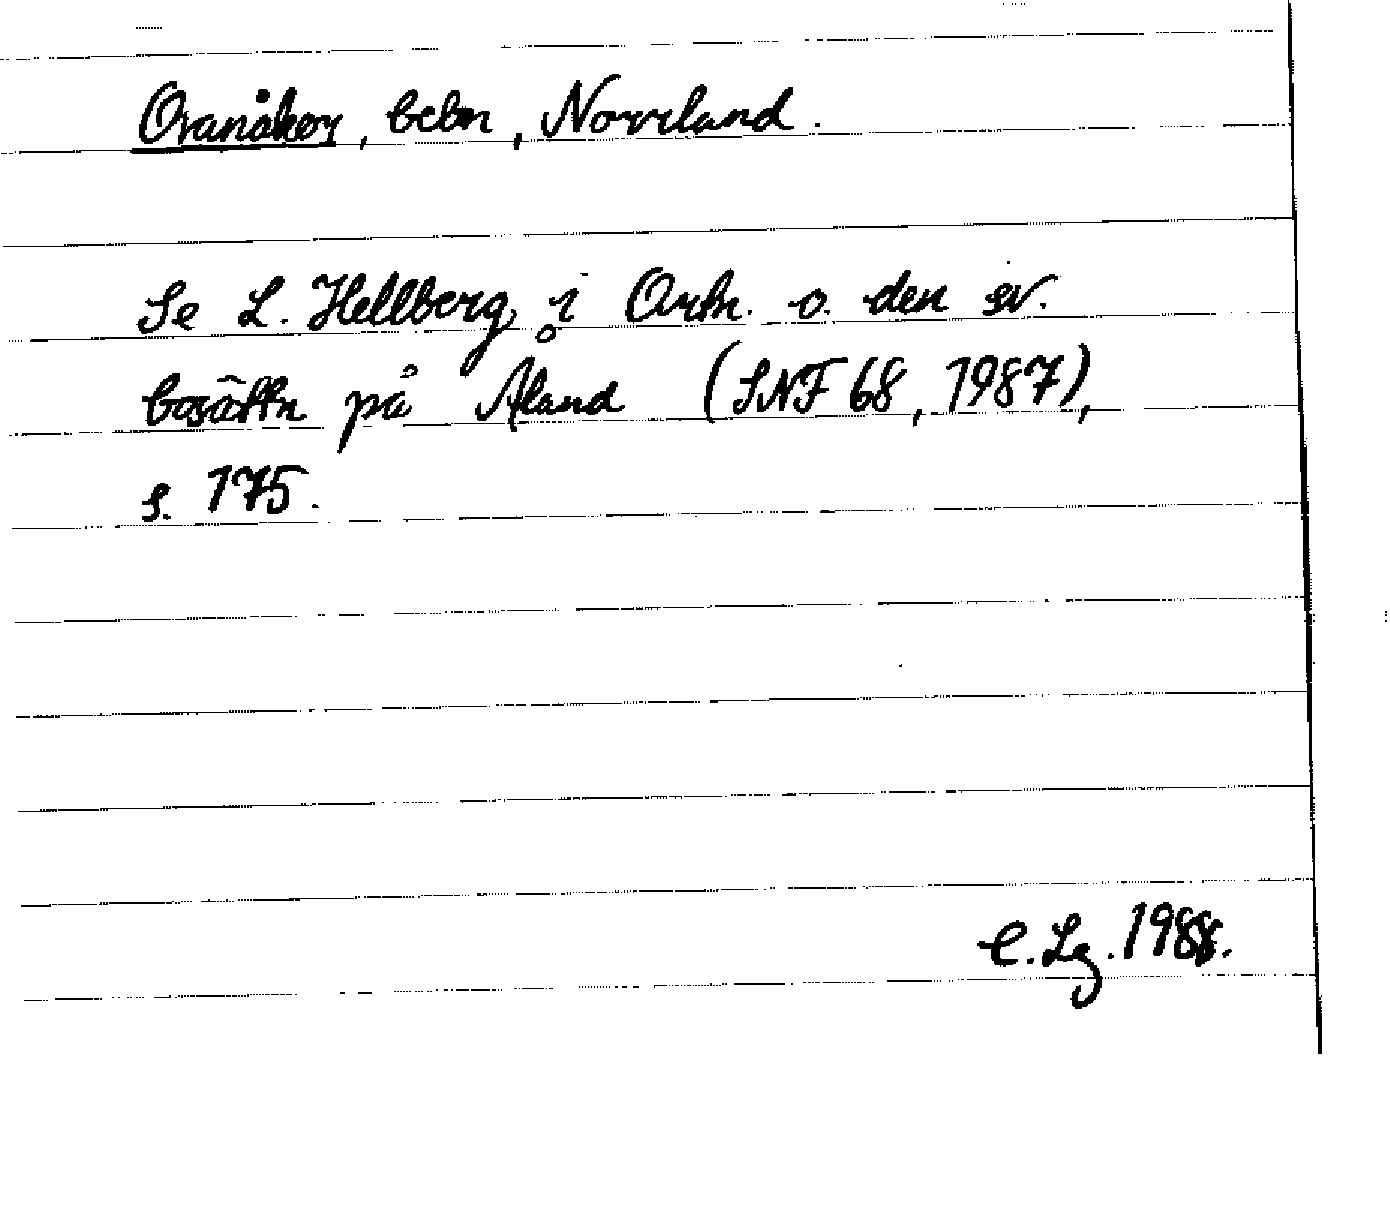 Ovanåker, bebn, Norrland.
Se L. Hellberg i Ortn. o. den sv.
bosättn på Åland (SNF 68, 1987),
s. 175.
C. Lg. 1988.